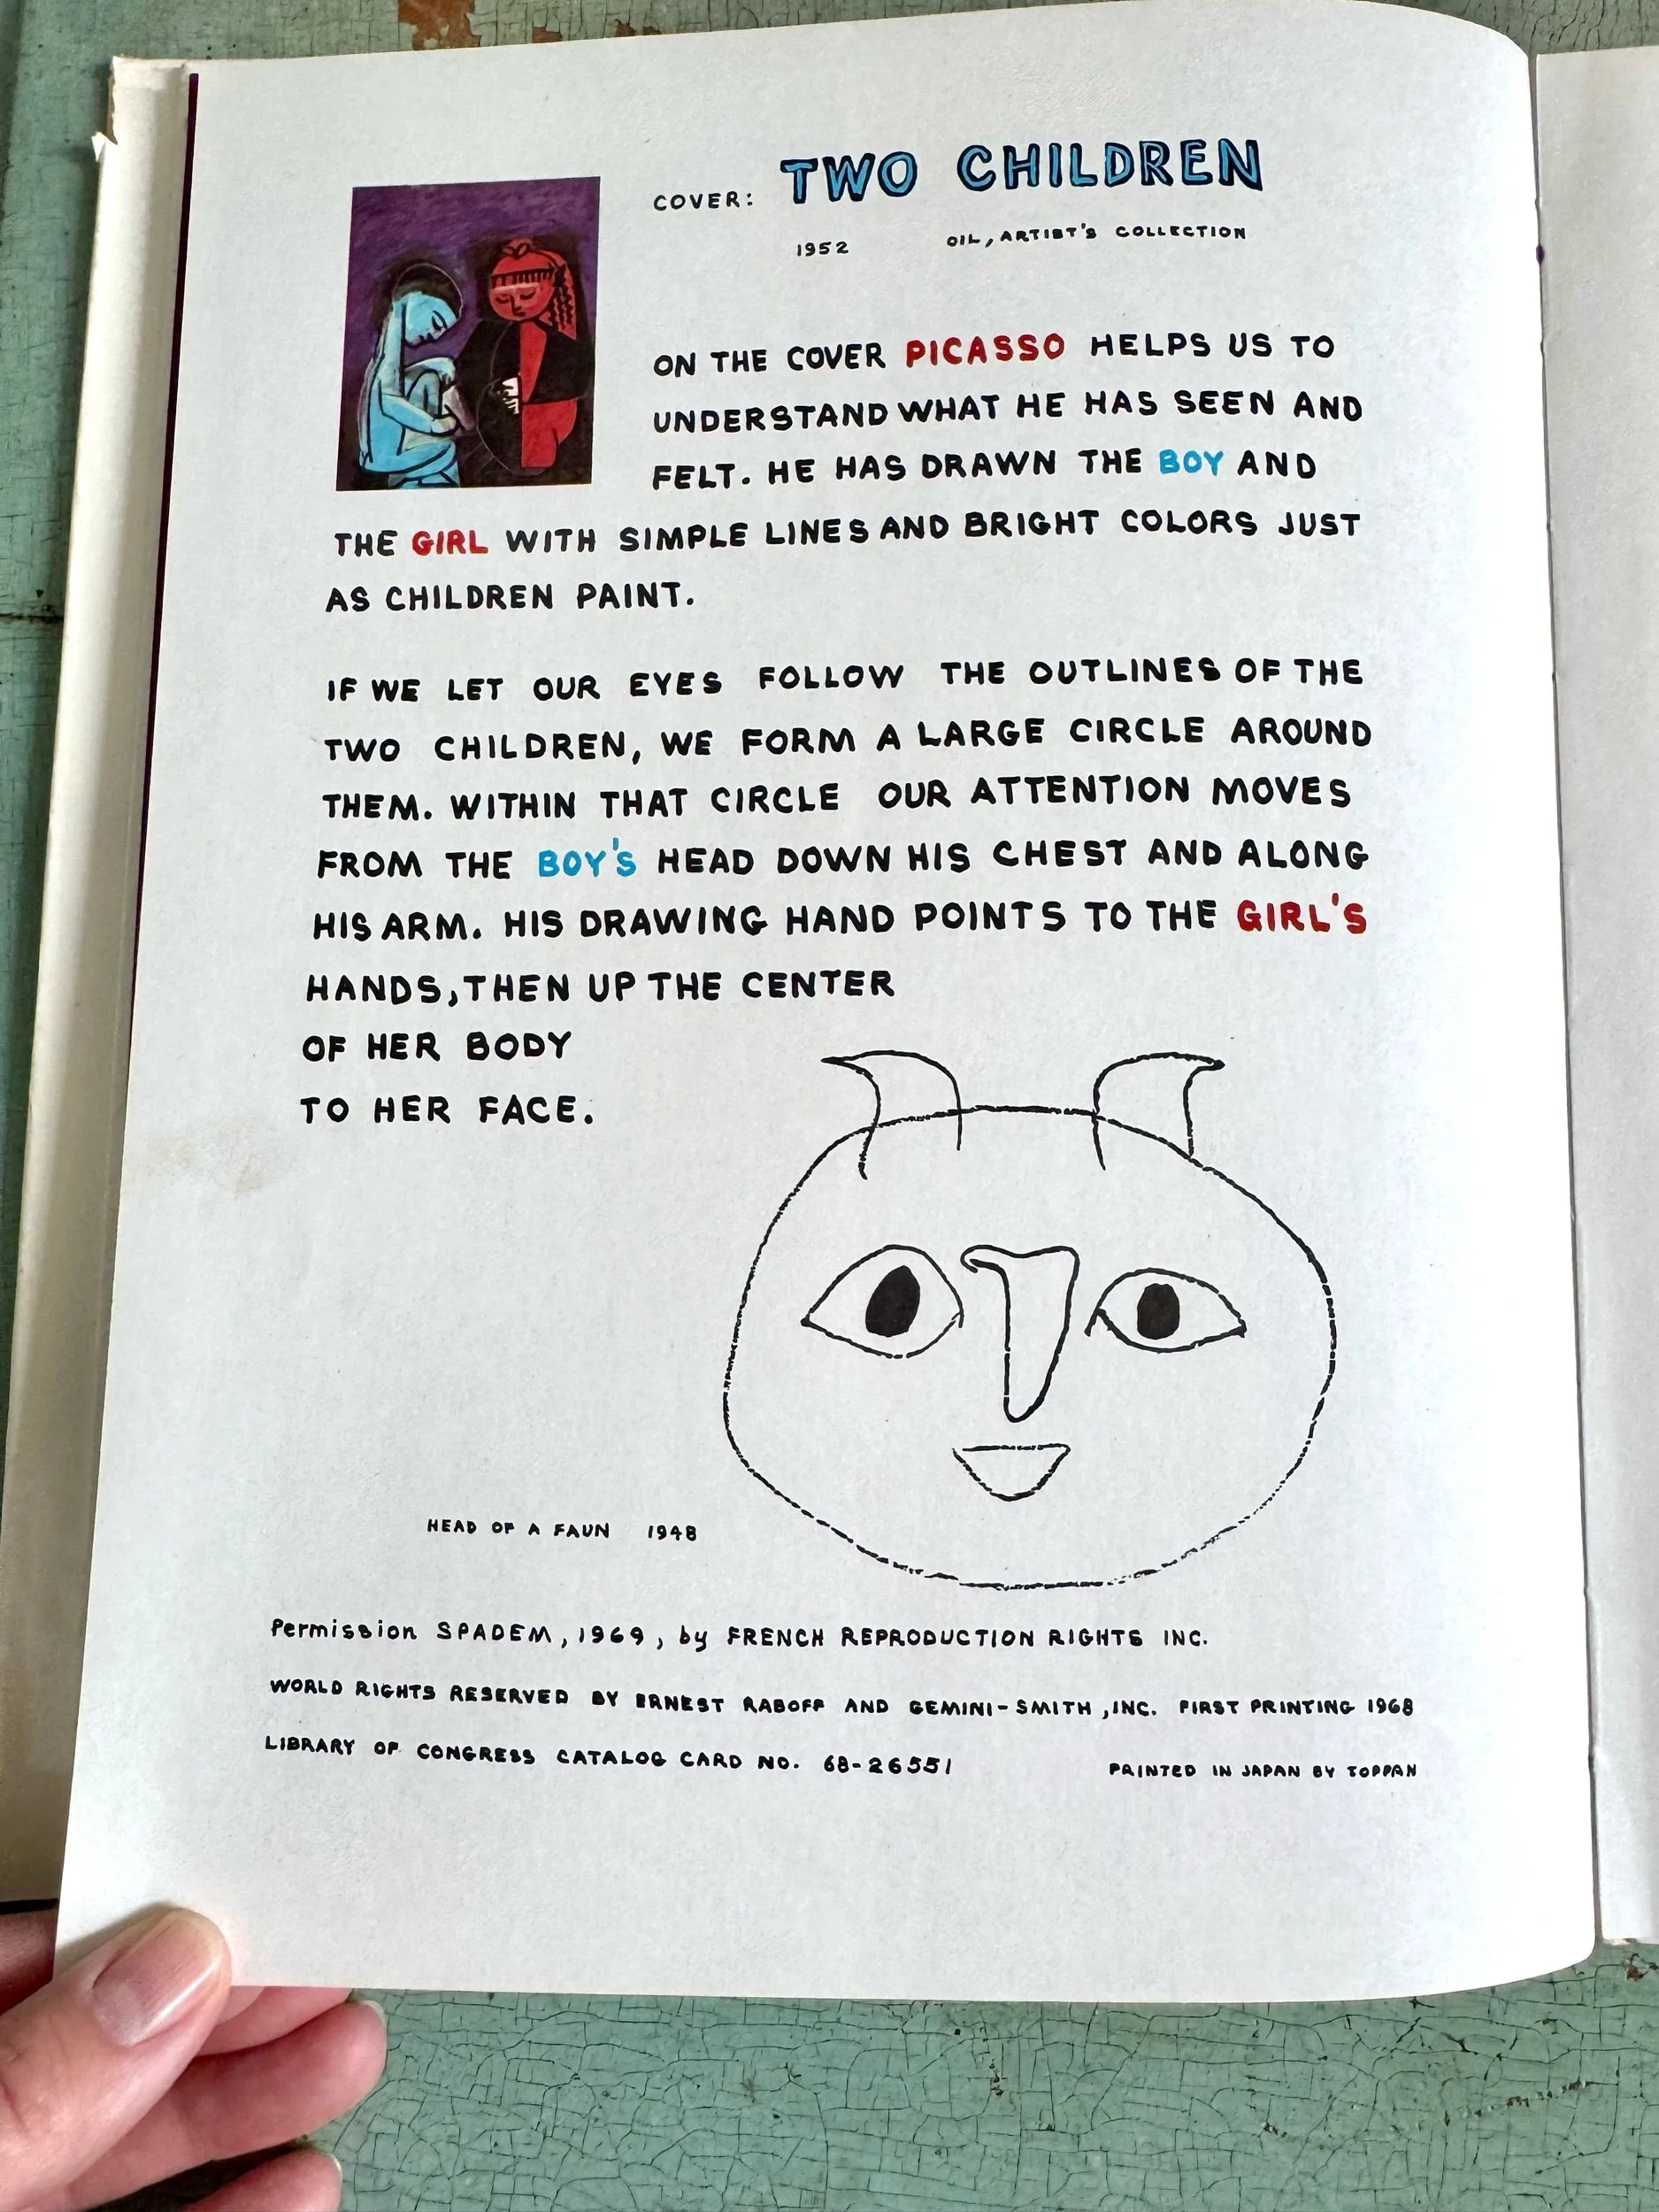 COVER: TWO CHILDREN
1952 OIL, ARTIST'S COLLECTION
ON THE COVER PICASSO HELPS US TO
UNDERSTAND WHAT HE HAS SEEN AND
FELT. HE HAS DRAWN THE BOY AND
THE GIRL WITH SIMPLE LINES AND BRIGHT COLORS JUST
AS CHILDREN PAINT.
IF WE LET OUR EYES FOLLOW THE OUTLINES OF THE
TWO CHILDREN, WE FORM A LARGE CIRCLE AROUND
THEM. WITHIN THAT CIRCLE OUR ATTENTION MOVES
FROM THE BOY'S HEAD DOWN HIS CHEST AND ALONG
HIS ARM. HIS DRAWING HAND POINTS TO THE GIRL'S
HANDS, THEN UP THE CENTER
OF HER BODY
TO HER FACE.
HEAD OF A FAUN 1948
Permission SPADEM, 1969, by FRENCH REPRODUCTION RIGHTS INC.
WORLD RIGHTS RESERVED BY ERNEST RABOFF AND GEMINI-SMITH, INC. FIRST PRINTING 1968
LIBRARY OF CONGRESS CATALOG CARD NO. 68-26551 PRINTED IN JAPAN BY TOPPAN